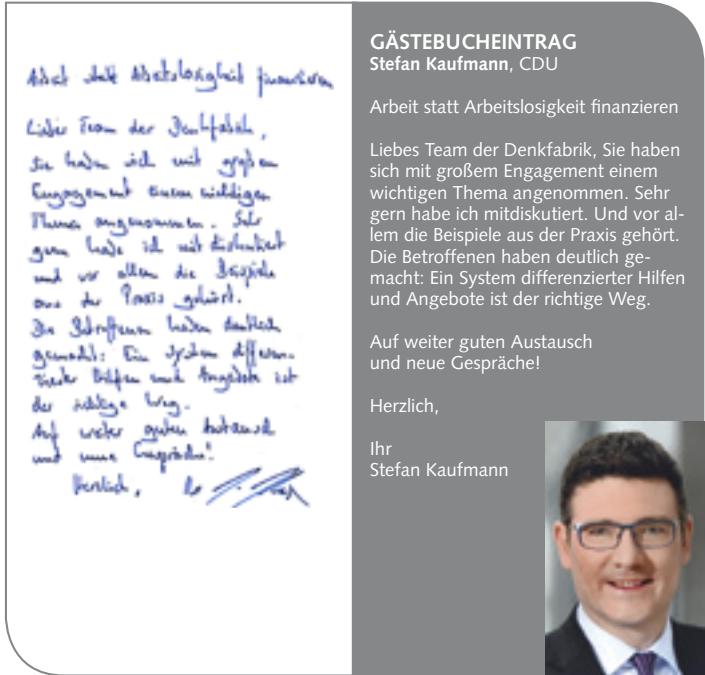 Arbeit statt Arbeitslosigkeit finanzieren
Liebes Team der Denkfabrik,
Sie haben sich mit großem
Engagement einem wichtigen
Thema angenommen. Sehr
gern habe ich mitdiskutiert
und vor allem die Beispiele
aus der Praxis gehört.
Die Betroffenen haben deutlich
gemacht: Ein System differen-
zierter Hilfen und Angebote ist
der richtige Weg.
Auf weiter guten Austausch
und neue Gespräche!
Herzlich, Ihr
GÄSTEBUCHEINTRAG
Stefan Kaufmann, CDU
Arbeit statt Arbeitslosigkeit finanzieren
Liebes Team der Denkfabrik, Sie haben
sich mit großem Engagement einem
wichtigen Thema angenommen. Sehr
gern habe ich mitdiskutiert. Und vor al-
lem die Beispiele aus der Praxis gehört.
Die Betroffenen haben deutlich ge-
macht: Ein System differenzierter Hilfen
und Angebote ist der richtige Weg.
Auf weiter guten Austausch
und neue Gespräche!
Herzlich,
Ihr
Stefan Kaufmann